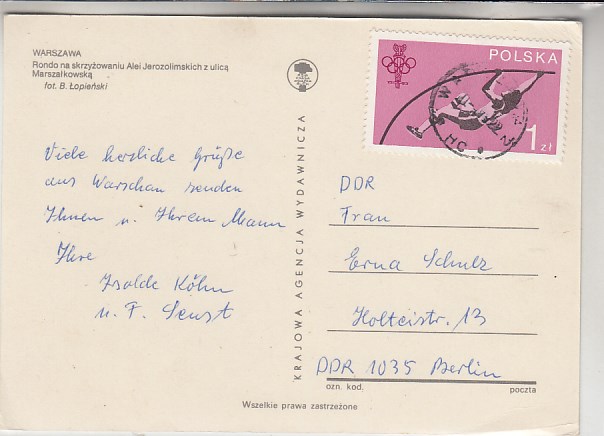 WARSZAWA
Rondo na skrzyżowaniu Alei Jerozolimskich z ulicą
Marszałkowską
fot. B. Łopieński
POLSKA
1 zł
KRAJOWA AGENCJA WYDAWNICZA
Viele herzliche Grüße
aus Warschau senden
Ihnen u. Ihrem Mann
Ihre
Isolde Köhn
u. F. Senst
DDR
Frau
Erna Schulz
Holteistr. 13
DDR 1035 Berlin
ozn. kod. poczta
Wszelkie prawa zastrzeżone